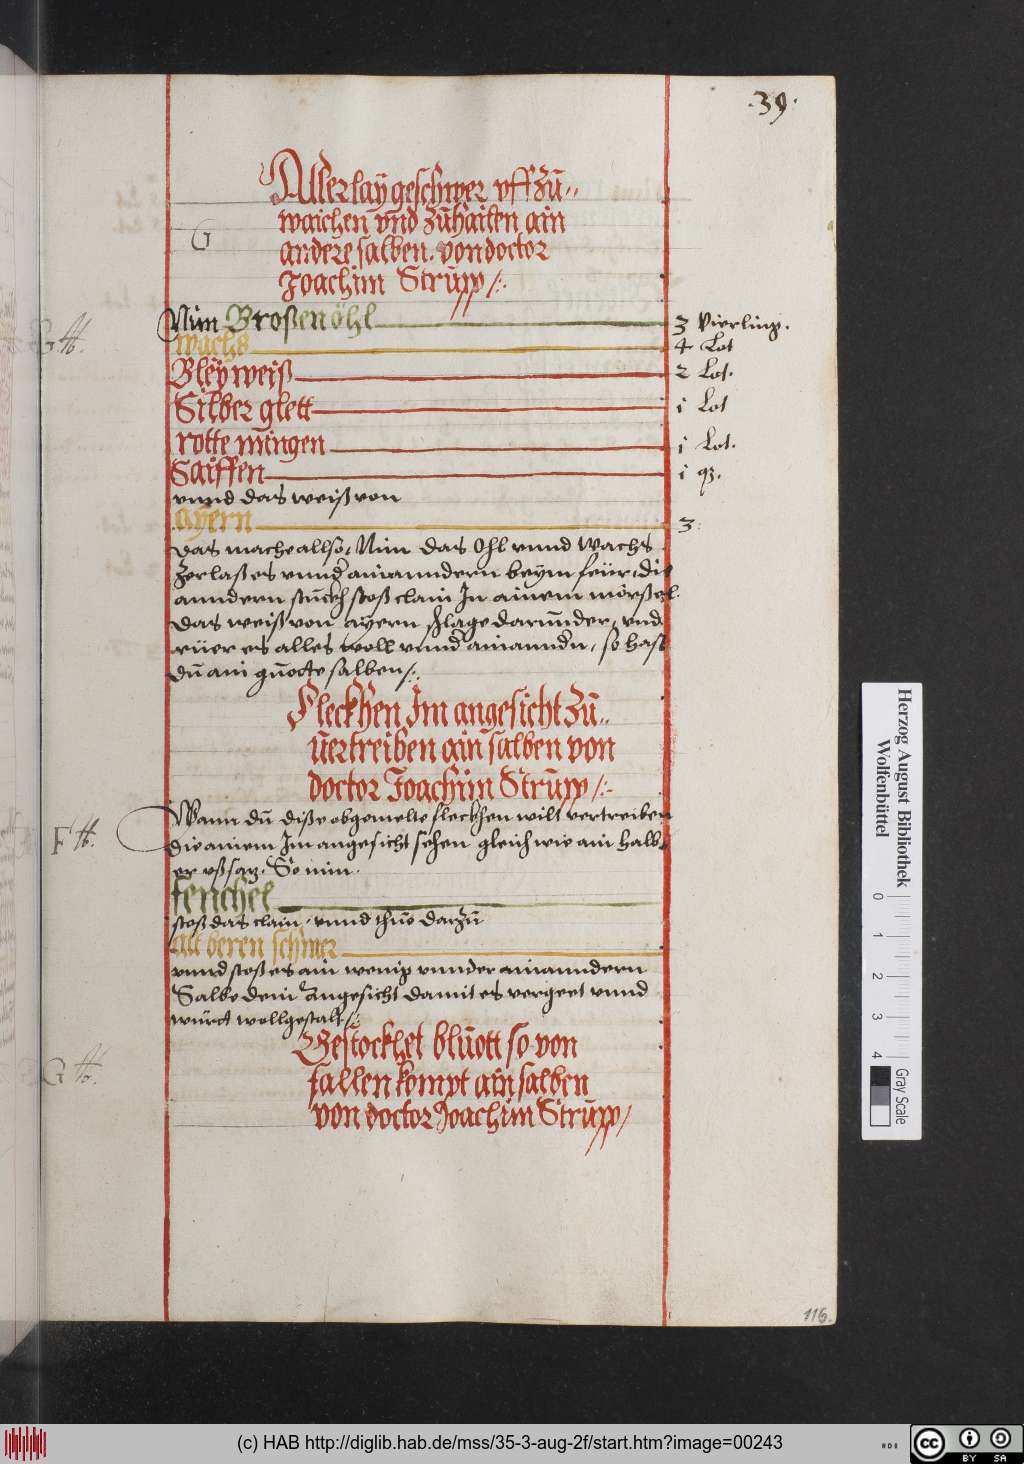 .39.
Allerlaÿ geschwer vff zů„
waichen vnd zůhailen ain
andere salben. von doctor
Joachim Strŭpp /:.
G
Nim Roßenöhl 3 Vierling.
wachs 4 Lot
Bleÿweiß 2 Lot.
Silber glett i Lot
rotte mingen i Lot.
Saiffen i q.
vnnd das weiß von
aÿern 3
Das mache allso, Nim das Ohl vnnd wachs
zerlaß es vnnder ainanndern beym feür, die
anndern stuckh stoß clain Jn ainem mörßel.
das weiß von aÿern schlage darunder, vnd
rüer es alles woll vnnder ainanndern, so hast
dŭ ain gŭotte salben /:.
Fleckhen Jm angesicht zŭ„
vertreiben ain salben von
doctor Joachim Strŭpp /:.
Wann dŭ diße obgemelte fleckhen wilt vertreiben
F
die ainem Jm angesicht sehen gleich wie ain halb
er vssaz. So nim.
fenchel
stoß das clain, vnnd thŭe darzŭ
alt beren schmer
vnnd stoß es ain wenig vnnder ainanndern
Salbe dein Angesicht damit es vergeet vnnd
würdt wollgestalt /:.
G
Gestockhet blŭott so von
fallen kompt ain salben
von doctor Joachim Strŭpp /
116.
Herzog August Bibliothek
Wolfenbüttel
0 1 2 3 4
Gray Scale
(c) HAB http://diglib.hab.de/mss/35-3-aug-2f/start.htm?image=00243
cc BY SA